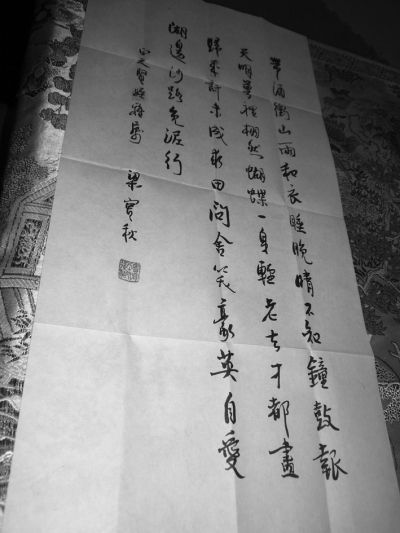 帶酒衝山雨和衣睡晚晴不知鐘鼓報
天明夢裡栩然蝴蝶一身輕老去才都盡
歸來計未成求田問舍笑豪英自愛
湖邊沙路免泥行
梁實秋